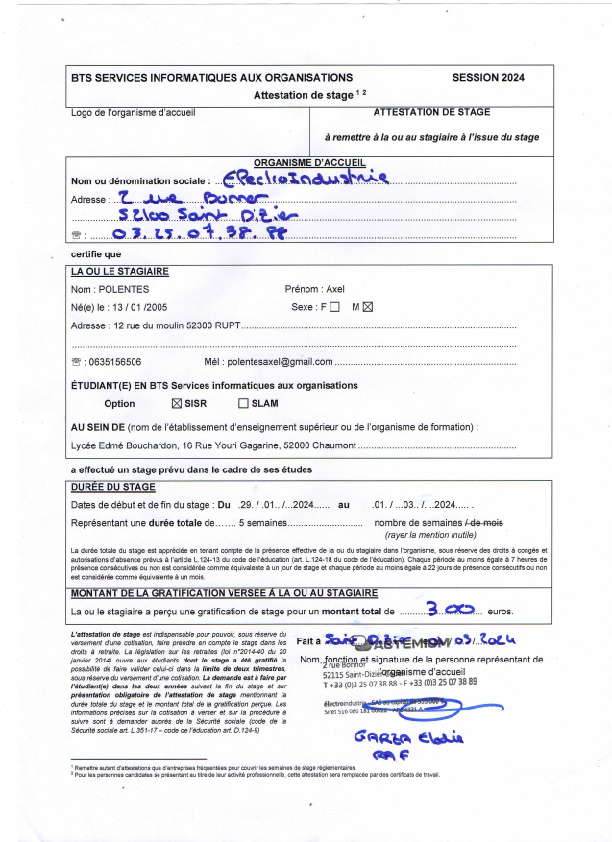 BTS SERVICES INFORMATIQUES AUX ORGANISATIONS SESSION 2024
Attestation de stage 1 2
Logo de l'organisme d'accueil
ATTESTATION DE STAGE
à remettre à la ou au stagiaire à l'issue du stage
ORGANISME D'ACCUEIL
Nom ou dénomination sociale : ElectroIndustrie
Adresse : 2 rue Bonnor
52100 Saint Dizier
☏ : 03.25.07.38.88
certifie que
LA OU LE STAGIAIRE
Nom : POLENTES Prénom : Axel
Né(e) le : 13 / 01 /2005 Sexe : F ☐ M ☒
Adresse : 12 rue du moulin 52300 RUPT
☏ : 0635156506 Mél : polentesaxel@gmail.com
ÉTUDIANT(E) EN BTS Services informatiques aux organisations
Option ☒ SISR ☐ SLAM
AU SEIN DE (nom de l'établissement d'enseignement supérieur ou de l'organisme de formation) :
Lycée Edmé Bouchardon, 16 Rue Youri Gagarine, 52000 Chaumont
a effectué un stage prévu dans le cadre de ses études
DURÉE DU STAGE
Dates de début et de fin du stage : Du .29. / .01. /...2024...... au .01. / ...03.. / ..2024..... .
Représentant une durée totale de....... 5 semaines.................. nombre de semaines / de mois
(rayer la mention inutile)
La durée totale du stage est appréciée en tenant compte de la présence effective de la ou du stagiaire dans l'organisme, sous réserve des droits à congés et
autorisations d'absence prévus à l'article L.124-13 du code de l'éducation (art. L.124-18 du code de l'éducation). Chaque période au moins égale à 7 heures de
présence consécutives ou non est considérée comme équivalente à un jour de stage et chaque période au moins égale à 22 jours de présence consécutifs ou non
est considérée comme équivalente à un mois.
MONTANT DE LA GRATIFICATION VERSÉE À LA OU AU STAGIAIRE
La ou le stagiaire a perçu une gratification de stage pour un montant total de 300 euros.
L'attestation de stage est indispensable pour pouvoir, sous réserve du
versement d'une cotisation, faire prendre en compte le stage dans les
droits à retraite. La législation sur les retraites (loi n°2014-40 du 20
janvier 2014) ouvre aux étudiants dont le stage a été gratifié la
possibilité de faire valider celui-ci dans la limite de deux trimestres,
sous réserve du versement d'une cotisation. La demande est à faire par
l'étudiant(e) dans les deux années suivant la fin du stage et sur
présentation obligatoire de l'attestation de stage mentionnant la
durée totale du stage et le montant total de la gratification perçue. Les
informations précises sur la cotisation à verser et sur la procédure à
suivre sont à demander auprès de la Sécurité sociale (code de la
Sécurité sociale art. L.351-17 – code de l'éducation art. D.124-9)
Fait à Saint Dizier /03/2024
Nom, fonction et signature de la personne représentant de
l'organisme d'accueil
2 rue Bonnor
52115 Saint-Dizier
T +33 (0)3 25 07 38 88 - F +33 (0)3 25 07 38 89
électroindustrie
GARZA Elodie
RAF
1 Remettre autant d'attestations que d'entreprises fréquentées pour couvrir les semaines de stage réglementaires.
2 Pour les personnes candidates se présentant au titre de leur activité professionnelle, cette attestation sera remplacée par des certificats de travail.